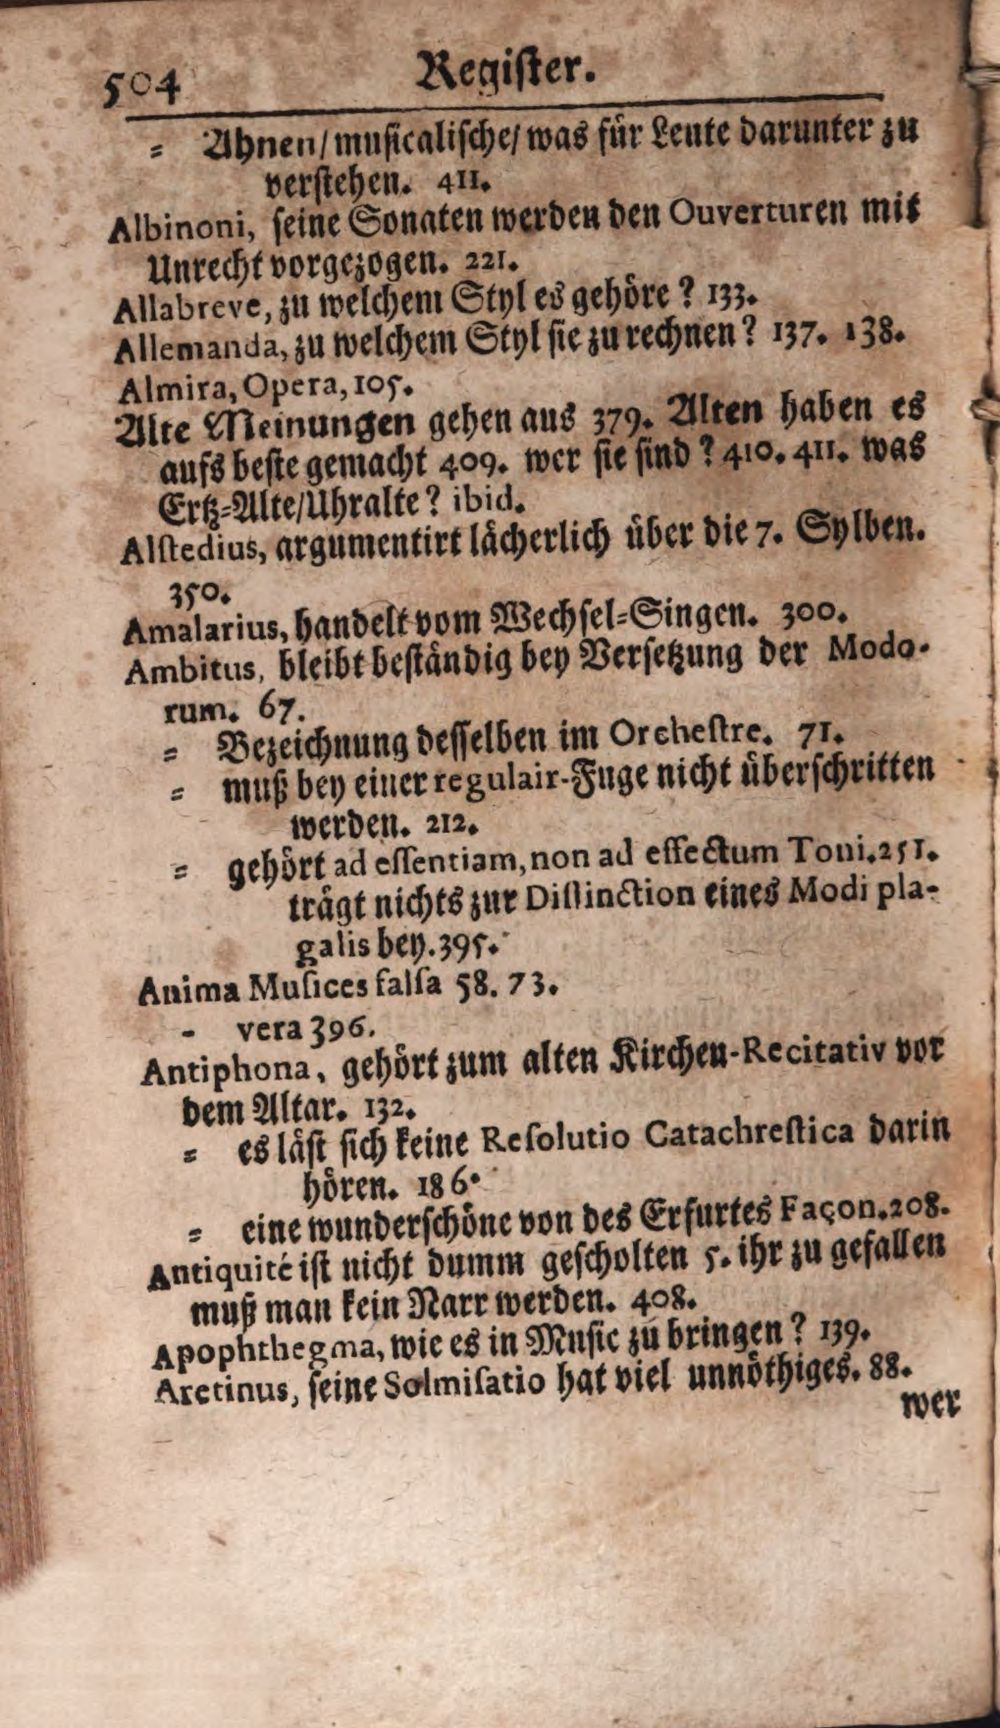 504 Regiſter.
⸗ Ahnen/ muſicaliſche/ was für Leute darunter zu
verſtehen. 411.
Albinoni, ſeine Sonaten werden den Ouverturen mit
Unrecht vorgezogen. 221.
Allabreve, zu welchem Styl es gehöre? 133.
Allemanda, zu welchem Styl ſie zu rechnen? 137. 138.
Almira, Opera, 105.
Alte Meinungen gehen aus 379. Alten haben es
aufs beſte gemacht 409. wer ſie ſind? 410. 411. was
Ertz⸗Alte/Uhralte? ibid.
Alſtedius, argumentirt lächerlich über die 7. Sylben.
350.
Amalarius, handelt vom Wechſel⸗Singen. 300.
Ambitus, bleibt beſtändig bey Verſetzung der Modo-
rum. 67.
⸗ Bezeichnung deſſelben im Orcheſtre. 71.
⸗ muß bey einer regulair-Fuge nicht überſchritten
werden. 212.
⸗ gehört ad eſſentiam, non ad effectum Toni. 251.
trägt nichts zur Diſtinction eines Modi pla-
galis bey. 395.
Anima Muſices falſa 58. 73.
- vera 396.
Antiphona, gehört zum alten Kirchen-Recitativ vor
dem Altar. 132.
⸗ es läſt ſich keine Reſolutio Catachreſtica darin
hören. 186.
⸗ eine wunderſchöne von des Erfurtes Façon. 208.
Antiquité iſt nicht dumm geſcholten 5. ihr zu gefallen
muß man kein Narr werden. 408.
Apophthegma, wie es in Muſic zu bringen? 139.
Aretinus, ſeine Solmiſatio hat viel unnöthiges. 88.
wer